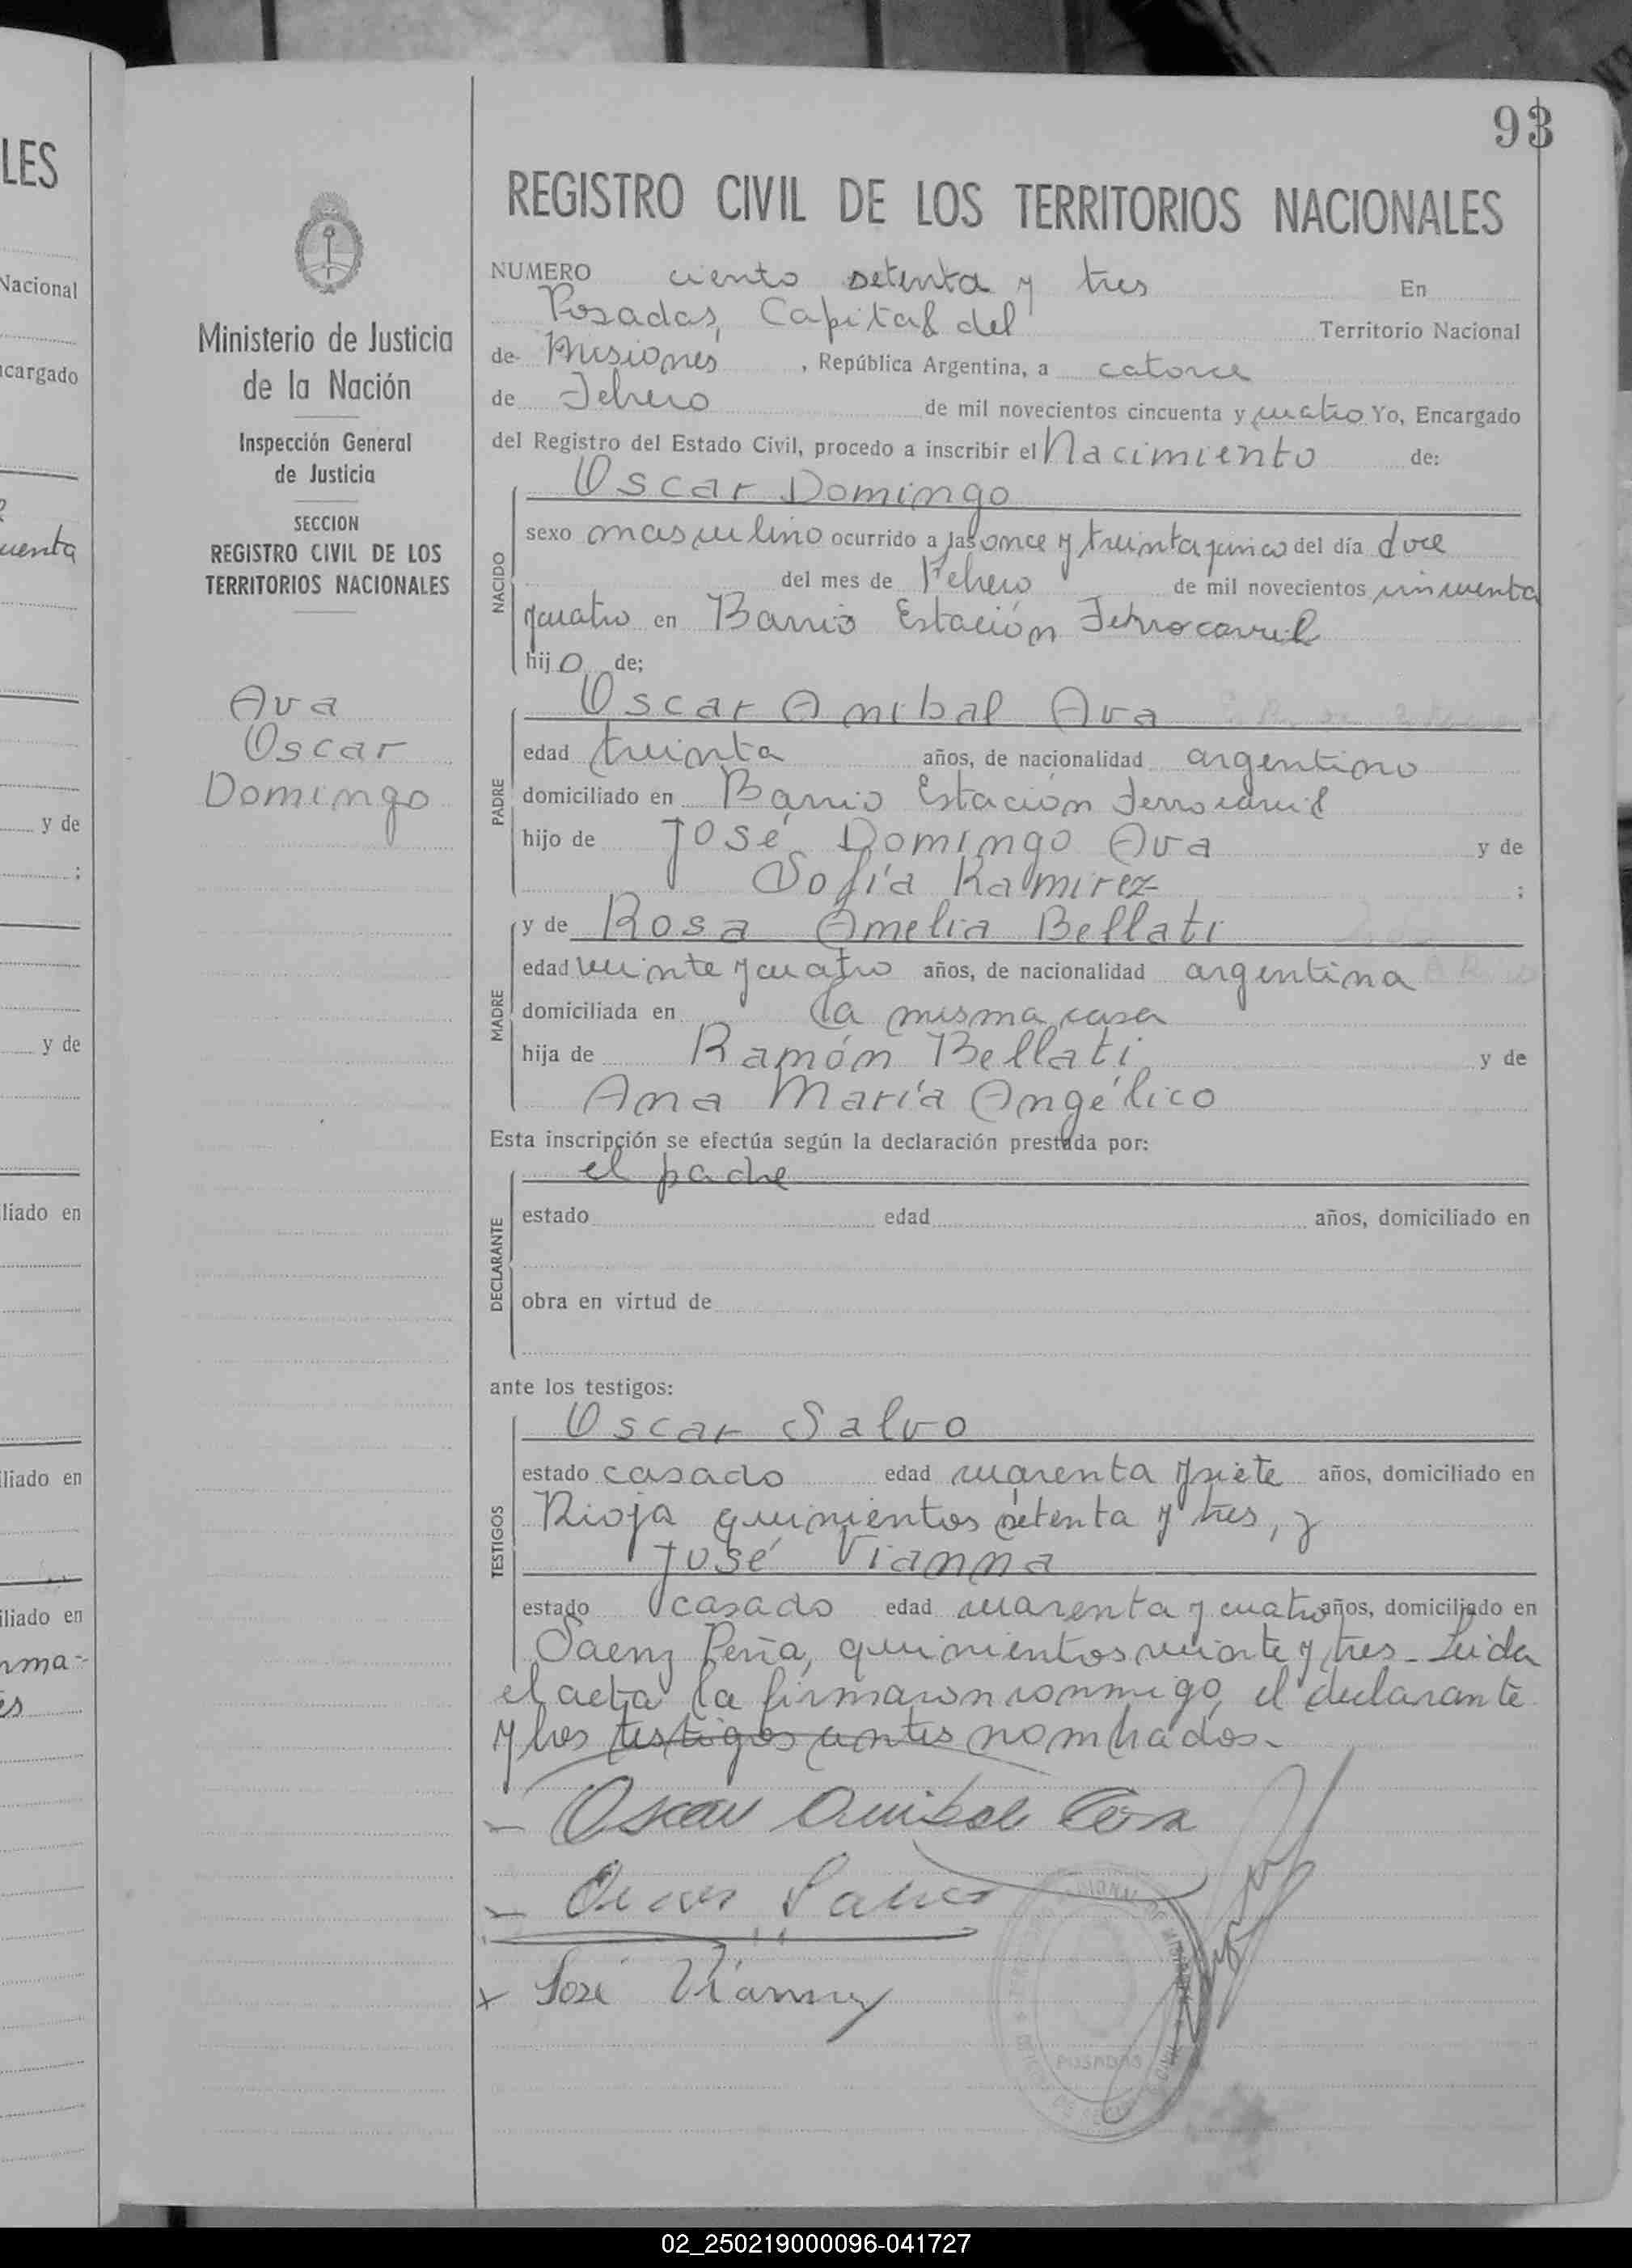 93
LES
Nacional
cargado
uenta
y de
;
y de
liado en
iliado en
iliado en
Ministerio de Justicia
de la Nación
Inspección General
de Justicia
SECCION
REGISTRO CIVIL DE LOS
TERRITORIOS NACIONALES
Ava
Oscar
Domingo
REGISTRO CIVIL DE LOS TERRITORIOS NACIONALES
NUMERO ciento setenta y tres En
Posadas, Capital del Territorio Nacional
de Misiones, República Argentina, a catorce
de Febrero de mil novecientos cincuenta y cuatro Yo, Encargado
del Registro del Estado Civil, procedo a inscribir el Nacimiento de:
Oscar Domingo
NACIDO
sexo masculino ocurrido a las once y treinta y cinco del día doce
del mes de Febrero de mil novecientos cincuenta
y cuatro en Barrio Estación Ferrocarril
hijo de;
Oscar Anibal Ava
PADRE
edad treinta años, de nacionalidad argentino
domiciliado en Barrio Estación Ferrocarril
hijo de José Domingo Ava y de
Sofía Ramirez ;
y de Rosa Amelia Bellati
MADRE
edad veinte y cuatro años, de nacionalidad argentina
domiciliada en la misma casa
hija de Ramón Bellati y de
Ana María Angélico
Esta inscripción se efectúa según la declaración prestada por:
el padre
DECLARANTE
estado edad años, domiciliado en
obra en virtud de
ante los testigos:
Oscar Salvo
TESTIGOS
estado casado edad cuarenta y siete años, domiciliado en
Rioja quinientos setenta y tres, y
José Vianna
estado casado edad cuarenta y cuatro años, domiciliado en
Saenz Peña, quinientos veinte y tres - Leida
el acta la firmaron conmigo, el declarante
y los testigos antes nombrados.
Oscar Anibal Ava
Oscar Salvo
José Vianna
POSADAS
02_250219000096-041727